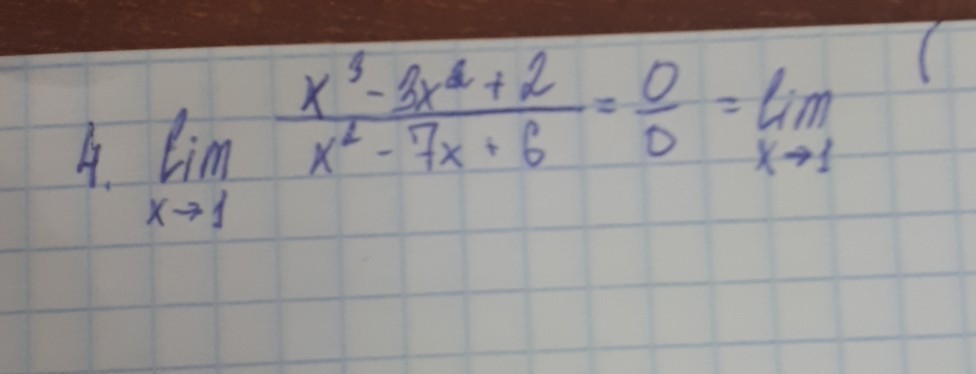 4. lim x→1 (x³ - 3x² + 2)/(x² - 7x + 6) = 0/0 = lim x→1 (